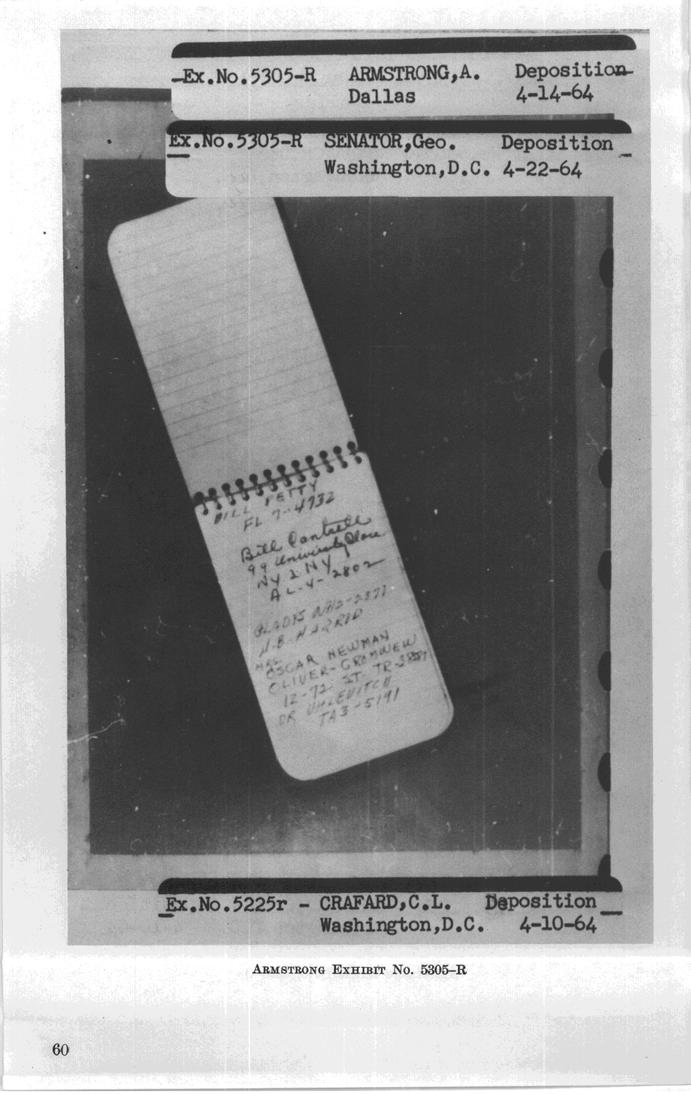 Ex.No.5305-R ARMSTRONG,A. Deposition
Dallas 4-14-64
Ex.No.5305-R SENATOR,Geo. Deposition
Washington,D.C. 4-22-64
BILL PETTY
FL 7-4732
Bill Cantrell
99 University Place
NY 2 NY
AL-4-2802
GLADYS
H.B.
MRS
OSCAR NEWMAN
OLIVER-
12-72 ST. TR-
DR
TA3-5191
Ex.No.5225r - CRAFARD,C.L. Deposition
Washington,D.C. 4-10-64
ARMSTRONG EXHIBIT No. 5305–R
60